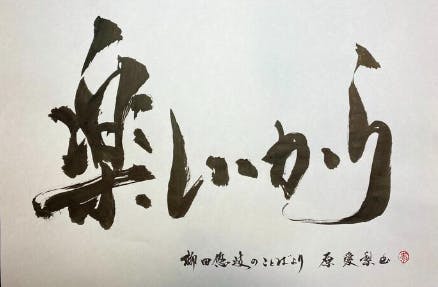 楽しいから
柳田悠岐のことばより 原愛梨